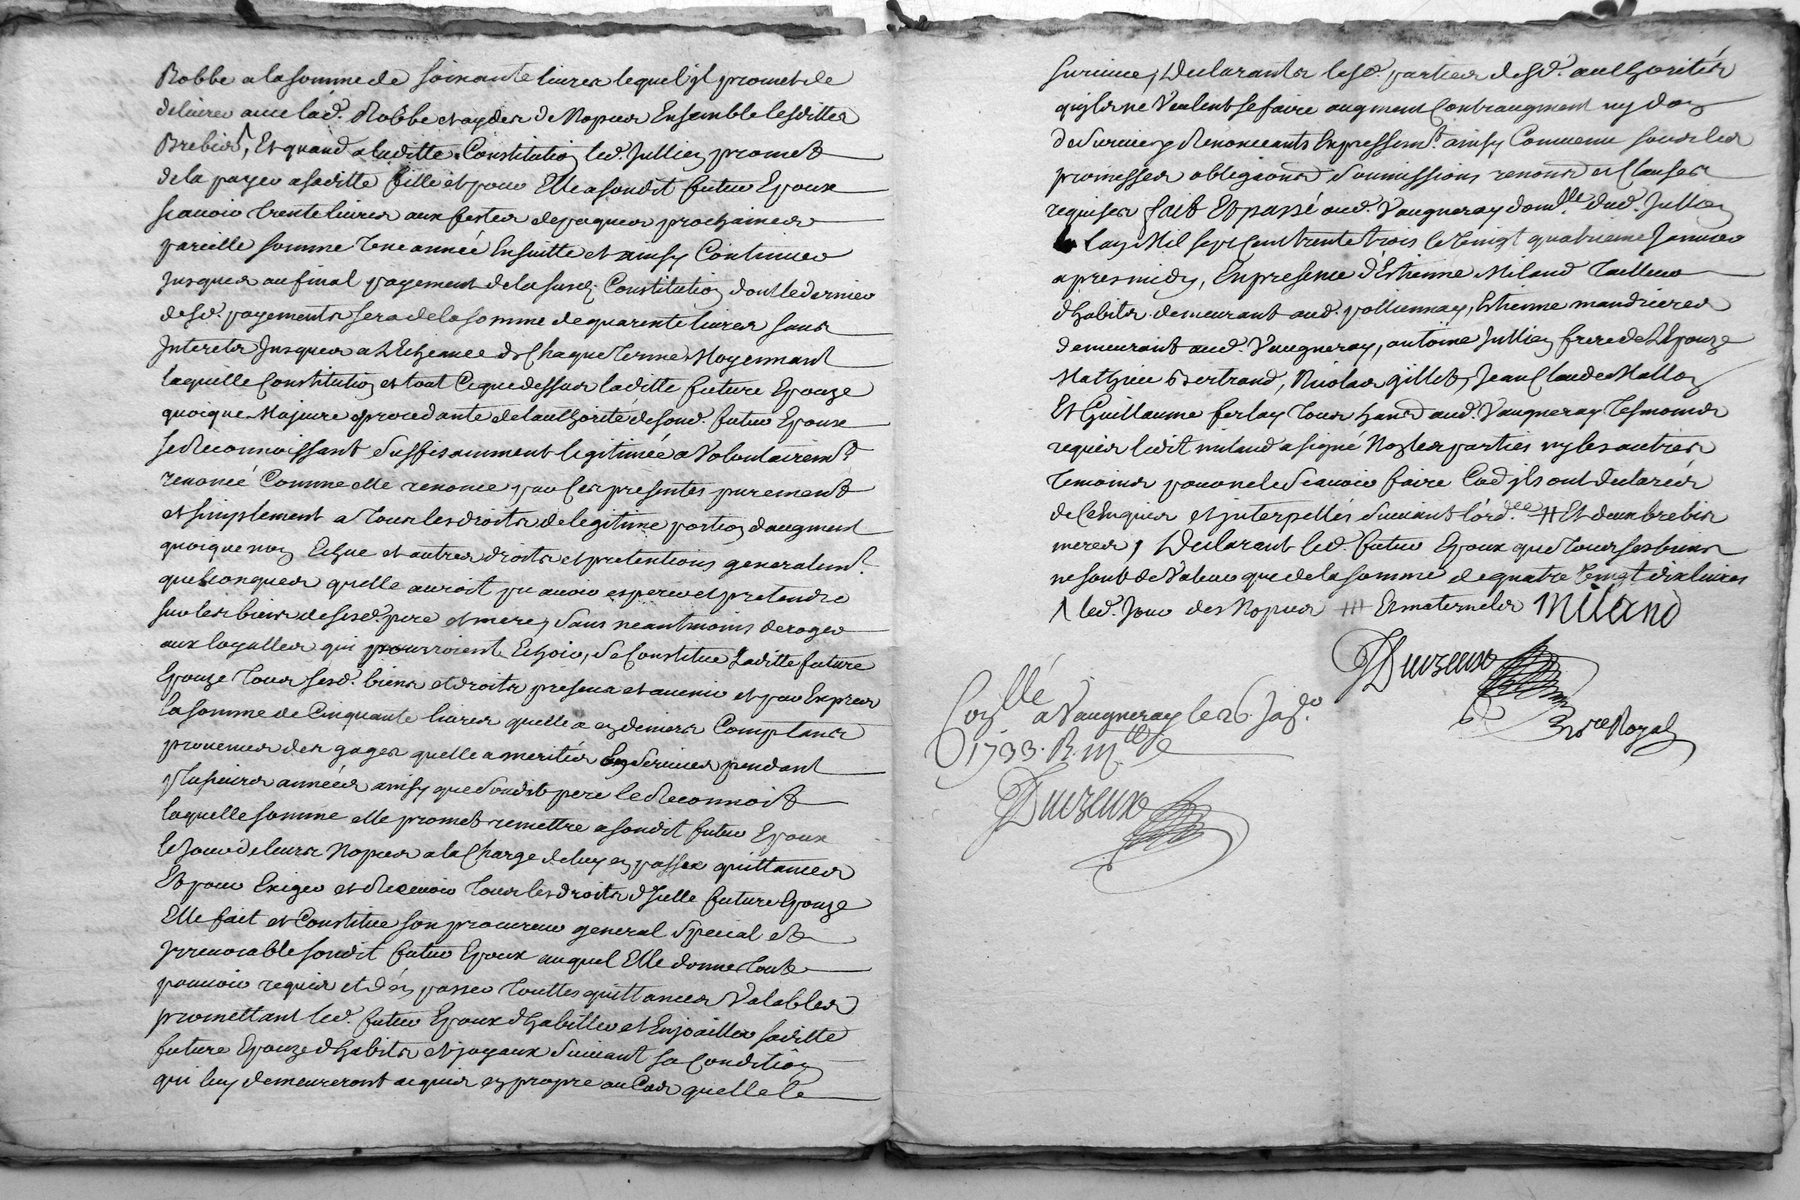 Robbe a la somme de soixante livres lequel jl promet de
delivrer avec lad. Robbe et ayder de Nopces Ensemble lesdittes
Brebis, Et quand a laditte Constitution led. Jullien promet
de la payer a saditte fille et pour Elle a sondit futur Epoux
scavoir trente livres aux festes de paques prochaines
pareille somme une année Ensuitte et ainsy Continuer
jusques au final payement de la susd. Constitution dont le dernier
desd. payements sera de la somme de quarente livres sans
Interets jusques a l'Echeance de Chaque terme, Moyennant
laquelle Constitution et tout Ce que dessus laditte future Epouze
quoique Majeure et procedante de l'authorité de sond. futur Epoux
se Reconnoissant suffisamment legitimée a Volontairemt.
renoncé Comme elle renonce par Ces presentes purement
et simplement a tous les droits de legitime portion d'augment
quoique non Echue et autres droits et pretentions generalemt.
quelconques quelle auroit pu avoir esperer et pretendre
sur les biens de sesd. pere et mere, sans neantmoins deroger
aux loyalles qui pourroient Echoir, se Constitue Laditte future
Epouze tous sesd. biens et droits presens et avenir et par Exprès
la somme de Cinquante livres quelle a en deniers Comptants
provenus des gages quelle a merités En Services pendant
plusieurs années ainsy que sondit pere le Reconnoit
laquelle somme elle promet remettre a sondit futur Epoux
le jour de leurs Nopces a la Charge de luy en passer quittances
Et pour Exiger et Recevoir tous les droits d'jcelle future Epouze
Elle fait et Constitue son procureur general special et
jrrevocable sondit futur Epoux auquel Elle donne toute
pouvoir requis et d'en passer touttes quittances Valables
promettant led. futur Epoux d'habiller et Enjoailler saditte
future Epouze d'habits et joyaux suivant sa Condition
qui luy demeureront acquis en propre au Cas quelle le
survive, Declarants lesd. parties desd. authorités
qujls ne Veulent se faire augment Contraugment ny don
de survie y Renonceants Expressemt. ainsy Convenu sous les
promesses obligaons. soumissions renons. et Clauses
requises fait Et passé aud. Vaugneray domlle. dud. Jullien
Lan Mil sept Cent trente trois le Vingt quatrieme Janvier
apres midy, En presence d'Estienne Miland Tailleur
d'habits demeurant aud. pollionnay, Estienne mandrieres
demeurant aud. Vaugneray, antoine Jullien frere de L'Epouze
Mathieu Bertrand, Nicolas gillet, Jean Claude Malloz
Et Guillaume ferlay tous habs. aud. Vaugneray Tesmoins
requis ledit miland a signé Non les parties ny les autres
temoins pour ne le scavoir faire Co'e jls ont declarés
de Ce Enquis et jnterpellés suivant l'ordce. # Et deux brebis
meres, Declarant led. futur Epoux que tous ses biens
ne sont de Valeur que de la somme de quatre Vingt dix livres
1 led. jour des Nopces ### Et maternels Miland
Duvreux
Nore Royal
Conllé
a Vaugneray le 26. Janvo.
1733. R.
Duvreux